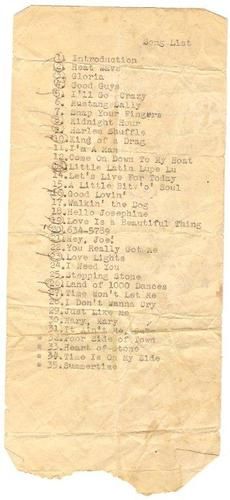 Song List
1. Introduction
2. Heat Wave
3. Gloria
4. Good Guys
5. I'll Go Crazy
6. Mustang Sally
7. Snap Your Fingers
8. Midnight Hour
9. Harlem Shuffle
10. King of a Drag
11. I'm A Man
12. Come On Down To My Boat
13. Little Latin Lupe Lu
14. Let's Live For Today
15. A Little Bit o' Soul
16. Good Lovin'
17. Walkin' the Dog
18. Hello Josephine
19. Love Is a Beautiful Thing
20. 634-5789
21. Hey, Joe!
22. You Really Got Me
23. Love Lights
24. I Need You
25. Stepping Stone
26. Land of 1000 Dances
27. Time Won't Let Me
28. I Don't Wanna Cry
29. Just Like Me
30. Mary, Mary
31. It Ain't Me,
32. Poor Side of Town
33. Heart of Stone
34. Time Is On My Side
35. Summertime